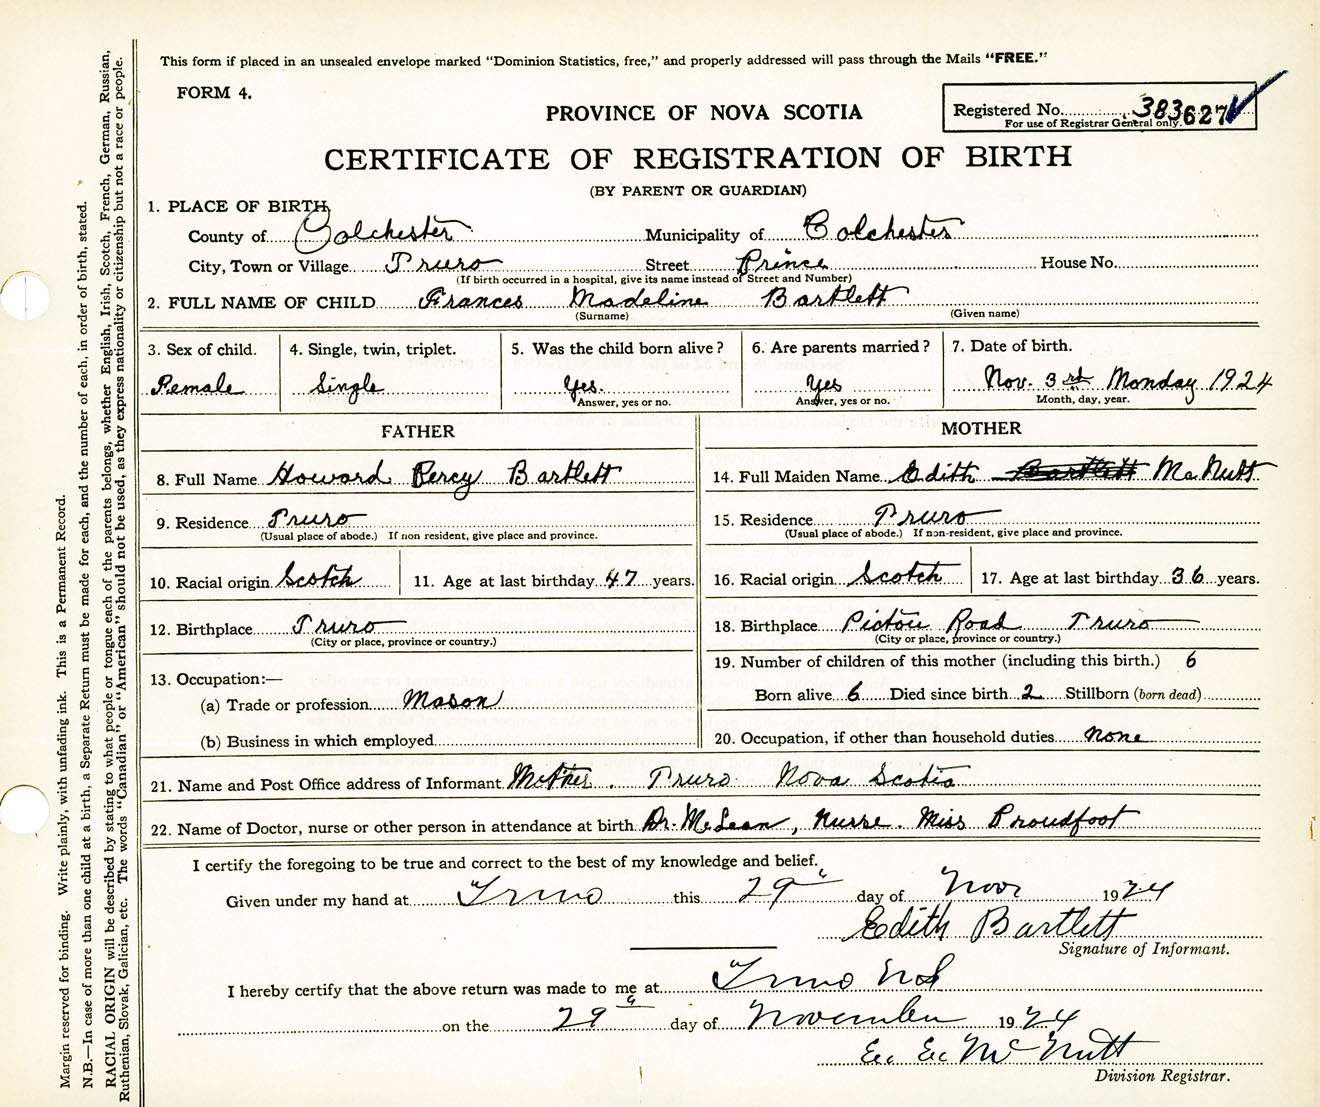 This form if placed in an unsealed envelope marked "Dominion Statistics, free," and properly addressed will pass through the Mails "FREE."
FORM 4.
Registered No. 383627
For use of Registrar General only.
PROVINCE OF NOVA SCOTIA
CERTIFICATE OF REGISTRATION OF BIRTH
(BY PARENT OR GUARDIAN)
1. PLACE OF BIRTH
County of Colchester Municipality of Colchester
City, Town or Village Truro Street Prince House No.
(If birth occurred in a hospital, give its name instead of Street and Number)
2. FULL NAME OF CHILD Frances Madeline Bartlett
(Surname) (Given name)
3. Sex of child. 4. Single, twin, triplet. 5. Was the child born alive? 6. Are parents married? 7. Date of birth.
Female Single Yes. Yes Nov. 3rd Monday 1924
Answer, yes or no. Answer, yes or no. Month, day, year.
FATHER MOTHER
8. Full Name Howard Percy Bartlett 14. Full Maiden Name Edith Bartlett MacNutt
9. Residence Truro 15. Residence Truro
(Usual place of abode.) If non resident, give place and province. (Usual place of abode.) If non-resident, give place and province.
10. Racial origin Scotch 11. Age at last birthday 47 years. 16. Racial origin Scotch 17. Age at last birthday 36 years.
12. Birthplace Truro 18. Birthplace Pictou Road Truro
(City or place, province or country.) (City or place, province or country.)
13. Occupation:— 19. Number of children of this mother (including this birth.) 6
(a) Trade or profession Mason Born alive 6 Died since birth 2 Stillborn (born dead)
(b) Business in which employed 20. Occupation, if other than household duties none
21. Name and Post Office address of Informant Mother. Truro Nova Scotia
22. Name of Doctor, nurse or other person in attendance at birth Dr. McLean, Nurse. Miss Proudfoot
I certify the foregoing to be true and correct to the best of my knowledge and belief.
Given under my hand at Truro this 29" day of Nov 1924
Edith Bartlett
Signature of Informant.
I hereby certify that the above return was made to me at Truro NS
on the 29 day of November 1924
E. E. McNutt
Division Registrar.
Margin reserved for binding. Write plainly, with unfading ink. This is a Permanent Record.
N.B.—In case of more than one child at a birth, a Separate Return must be made for each, and the number of each, in order of birth, stated.
RACIAL ORIGIN will be described by stating to what people or tongue each of the parents belongs, whether English, Irish, Scotch, French, German, Russian,
Ruthenian, Slovak, Galician, etc. The words "Canadian" or "American" should not be used, as they express nationality or citizenship but not a race or people.